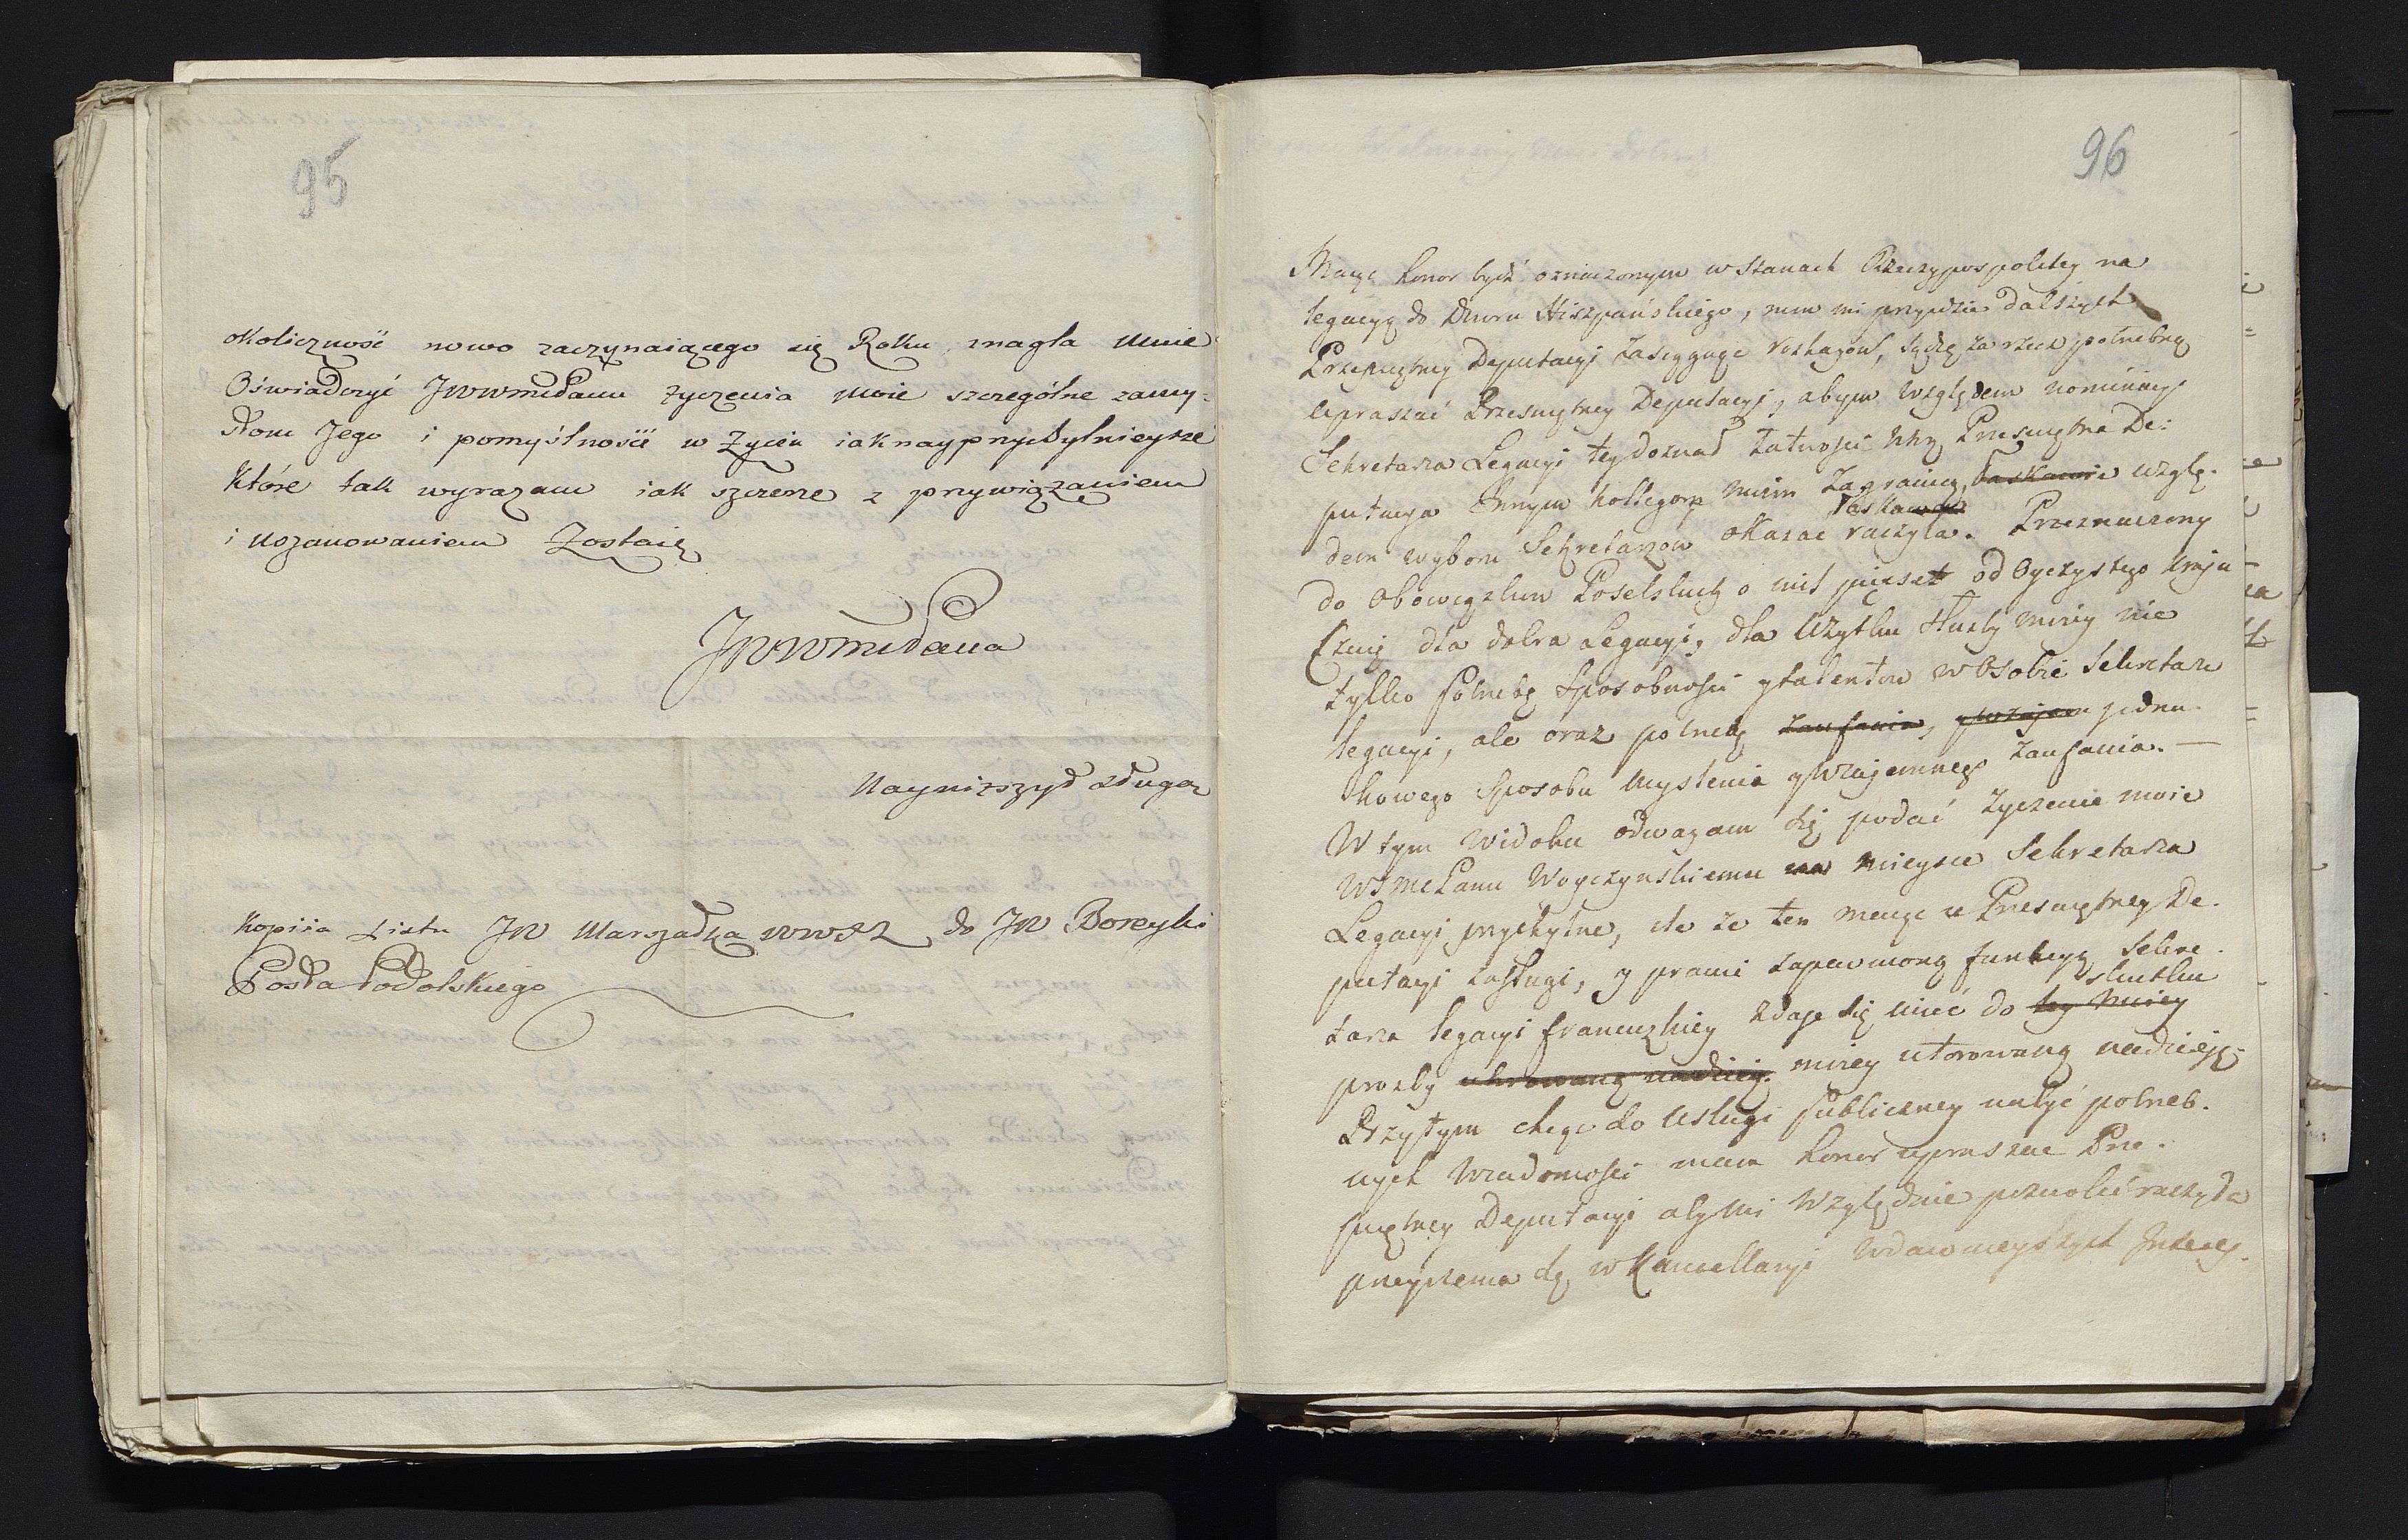 95
okoliczność nowo zaczynaiącego się Roku znagla mnie
Oświadczyć JWWmćPanu życzenia moie szczególne zamy-
słom Jego i pomyślności w Życiu iak nayprzychylnieysze
Które tak wyrazam iak szczerze z przywiązaniem
i uszanowaniem Zostaię
JWWmćPana
Nayniższym sługą
Kopiia Listu JW Marszałka WWXL do JW Boreyki
Posła Podolskiego
96
Maiąc honor bydź oznaczonym w Stanach Rzeczypospolitey na
legacyą do Dworu Hiszpańskiego, nim mi przyidzie dalszych
Przeświętney Deputacyi zasięgać rozkazów, sądzę za rzecz potrzebną
upraszać Przeświętney Deputacyi, abym względem nominacyi
Sekretarza Legacyi tey doznał łatwości którą Przeświętna De:
putacya Innym kollegom moim Zagranicą, łaskawie wzglę-
łaskawie
dem wyboru Sekretarzow okazać raczyła. Przeznaczony
do Obowiązkow Poselskich o mil pięcset od Oyczystego kraju
Czuię dla dobra Legacyi, dla Użytku służby moiey nie
tylko potrzebę Sposobności y talentow w Osobie Sekretarza
legacyi, ale oraz potrzebę zaufania, y wzajem jedna-
kowego Sposobu myslenia y wzajemnego zaufania. —
W tym widoku odwazam się podać życzenie moie
WJmcPanu Woyczynskiemu na mieysce Sekretarza
Legacyi przychylne, ile ze ten maiąc u Przeświętney De-
putacyi zasługi, y prawie zapewnioną funkcyą Sekre-
tarza legacyi francuzkiey zdaje się mieć do tey moiey
skutku
prozby utorowaną nadzieię. moiey utorowaną nadzieię.
Przytym chcąc do Usługi publiczney nabyć potrzeb-
nych Wiadomości mam honor upraszac Prze-
świętney Deputacyi aby mi Względnie pozwolić raczyła
przeyrzenia się w Kancellaryi wdawnieyszych Interes-